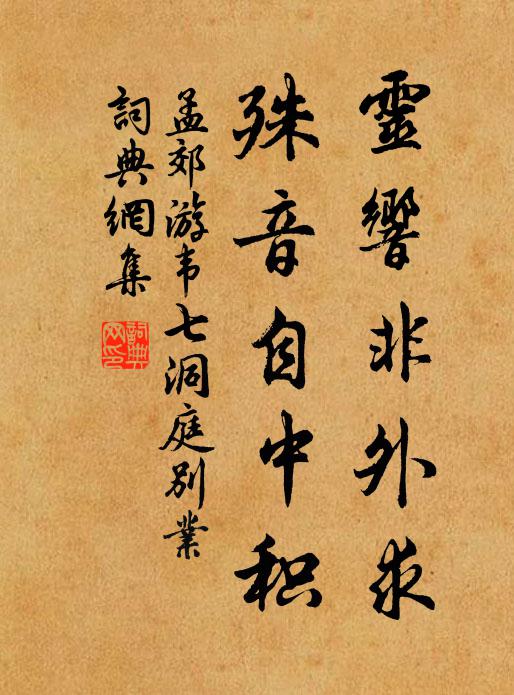 靈響非外求
殊音自中积
孟郊游韦七洞庭別業
詞典網集
詞典網印